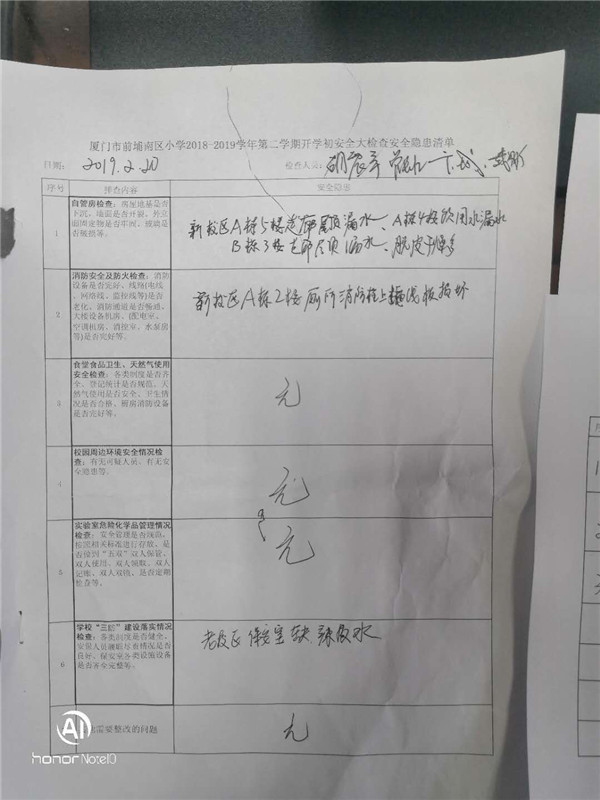 厦门市前埔南区小学2018-2019学年第二学期开学初安全大检查安全隐患清单
日期： 2019.2.20 检查人员：
序号 排查内容 安全隐患
1
自管房检查：房屋地基是否
下沉，墙面是否开裂，外立
面固定物是否牢固，玻璃是
否破损等。
新校区A栋5楼走廊屋顶漏水、A栋4楼 漏水
B栋3楼走廊屋顶漏水、脱皮
2
消防安全及防火检查：消防
设备是否完好、线络(电线
、网络线、监控线等)是否
老化、消防通道是否畅通、
大楼设备机房、(配电室、
空调机房、消控室、水泵房
等)是否完好等。
新校区A栋2楼厕所消防栓上 板损坏
3
食堂食品卫生、天然气使用
安全检查：各类制度是否齐
全、登记统计是否规范、天
然气使用是否安全、卫生情
况是否合格、厨房消防设备
是否完好等。
无
4
校园周边环境安全情况检
查：有无可疑人员、有无安
全隐患等。
无
5
实验室危险化学品管理情况
检查：安全管理是否规范，
按照相关标准进行存放、是
否做到“五双”双人保管、
双人使用、双人领取、双人
记账、双人双锁，是否定期
检查等。
无
6
学校“三防”建设落实情况
检查：各类制度是否健全、
安保人员履职尽责情况是否
良好、保安室各类设施设备
是否齐全完整等。
老校区保安室缺辣椒水
需要整改的问题
无
AI
honor Note10